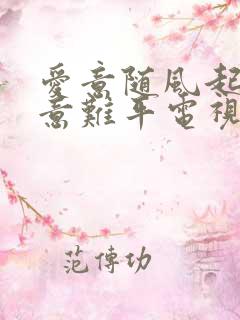 愛意随風起
意難平電視
范傳功